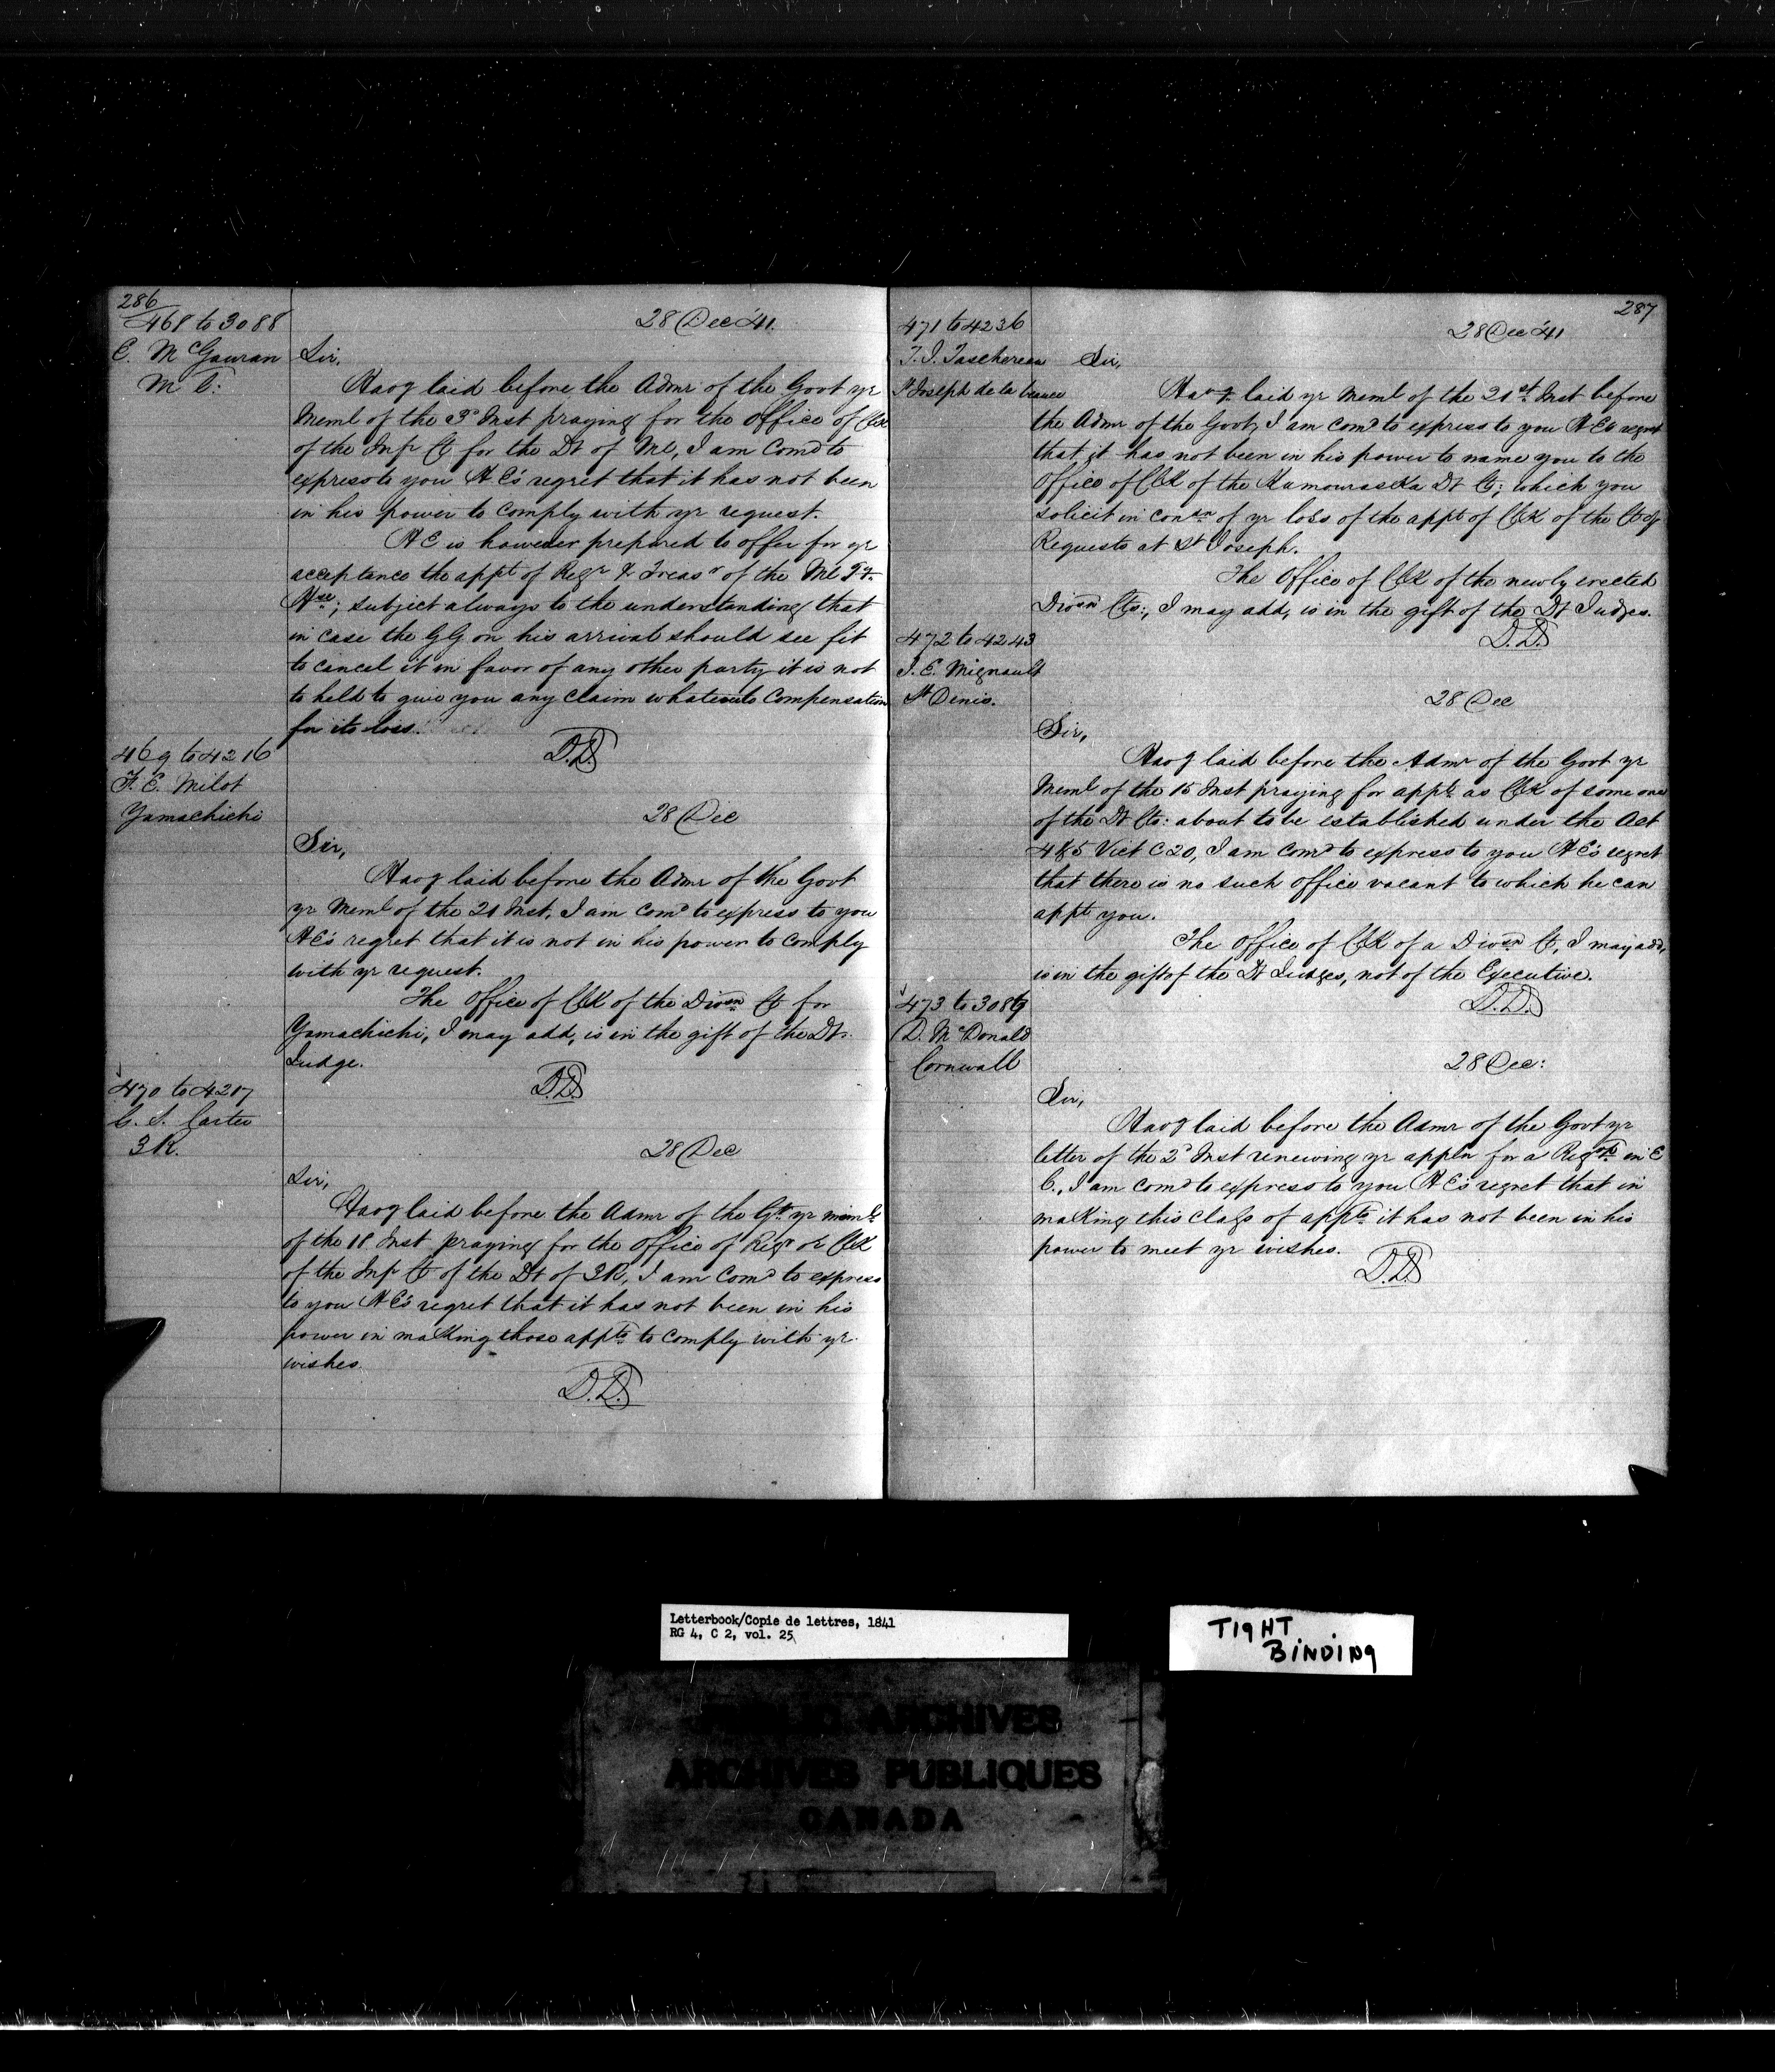 286
468 to 3088
E. McGauran
Ml:
28 Dec '41.
Sir,
Havg laid before the Admr of the Govt yr
Meml of the 3d Inst praying for the Office of Clk
of the Infr Ct for the Dt of Ml, I am Comd to
express to you H E's regret that it has not been
in his power to comply with yr request.
H E is however prepared to offer for yr
acceptance the appt of Regr & Treasr of the Ml Ty.
Hse; subject always to the understanding that
in case the GG on his arrival should see fit
to cancel it in favor of any other party it is not
to held to give you any claim whatever to Compensation
for its loss.
D.D.
469 to 4216
F. E. Milot
Yamachichi
28 Dec
Sir,
Havg laid before the Admr of the Govt
yr Meml of the 21 Inst, I am Comd to express to you
H E's regret that it is not in his power to comply
with yr request.
The Office of Clk of the Divsn Ct for
Yamachichi, I may add, is in the gift of the Dt.
Judge.
D.D.
470 to 4217
G. S. Carter
3 R.
28 Dec
Sir,
Havg laid before the Admr of the Gt yr memls
of the 18 Inst praying for the Office of Regr or Clk
of the Infr Ct of the Dt of 3R, I am Comd to express
to you H E's regret that it has not been in his
power in making those appts to comply with yr
wishes.
D.D.
287
471 to 4236
T. J. Taschereau
St Joseph de la beauce
28 Dec '41
Sir,
Havg laid yr Meml of the 21st Inst before
the Admr of the Govt, I am comd to express to you H E's regret
that it has not been in his power to name you to the
Office of Clk of the Kamouraska Dt Ct; which you
solicit in consn of yr loss of the appt of Clk of the Ct of
Requests at St Joseph.
The Office of Clk of the newly erected
Divsn Cts:, I may add, is in the gift of the Dt Judges.
D.D.
472 to 4243
J. E. Mignault
St Denis.
28 Dec
Sir,
Havg laid before the Admr of the Govt yr
Meml of the 15 Inst praying for appt as Clk of some one
of the Dt Cts: about to be established under the Act
4 & 5 Vict C 20, I am comd to express to you H E's regret
that there is no such office vacant to which he can
appt you.
The Office of Clk of a Divsn Ct, I may add,
is in the gift of the Dt Judges, not of the Executive.
D.D.
473 to 3089
D. McDonald
Cornwall
28 Dec:
Sir,
Havg laid before the Admr of the Govt yr
letter of the 2d Inst renewing yr appln for a Regrs in E
C., I am comd to express to you H E's regret that in
making this class of appts it has not been in his
power to meet yr wishes.
D.D.
Letterbook/Copie de lettres, 1841
RG 4, C 2, vol. 25
TIGHT
BINDING
PUBLIC ARCHIVES
ARCHIVES PUBLIQUES
CANADA